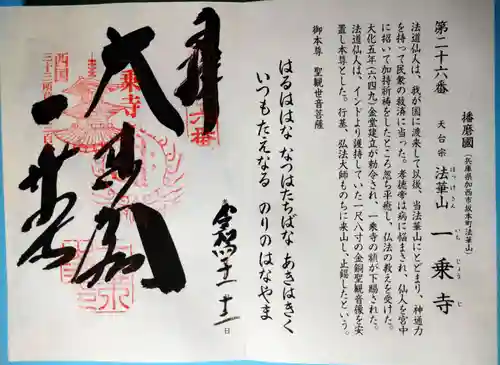 第二十六番
播磨國 (兵庫県加西市坂本町法華山)
天台宗 法華山 一乗寺
ほっけさん いちじょうじ
法道仙人は、我が国に渡来して以後、当法華山にとどまり、神通力
を持って民衆の救済に当った。孝徳帝は病に悩まされ、仙人を宮中
に招いて加持祈祷をしたところ忽ち平癒し、仏法の教えを受けた。
大化五年(六四九)金堂建立が勅令され、一乗寺の額が下賜された。
法道仙人は、インドより護持していた一尺八寸の金銅聖観音像を安
置し本尊とした。行基、弘法大師ものちに来山し、止錫したという。
御本尊 聖観世音菩薩
はるははな なつはたちばな あきはきく
いつもたえなる のりのはなやま
奉拝
大悲閣
一乗寺
西国
日